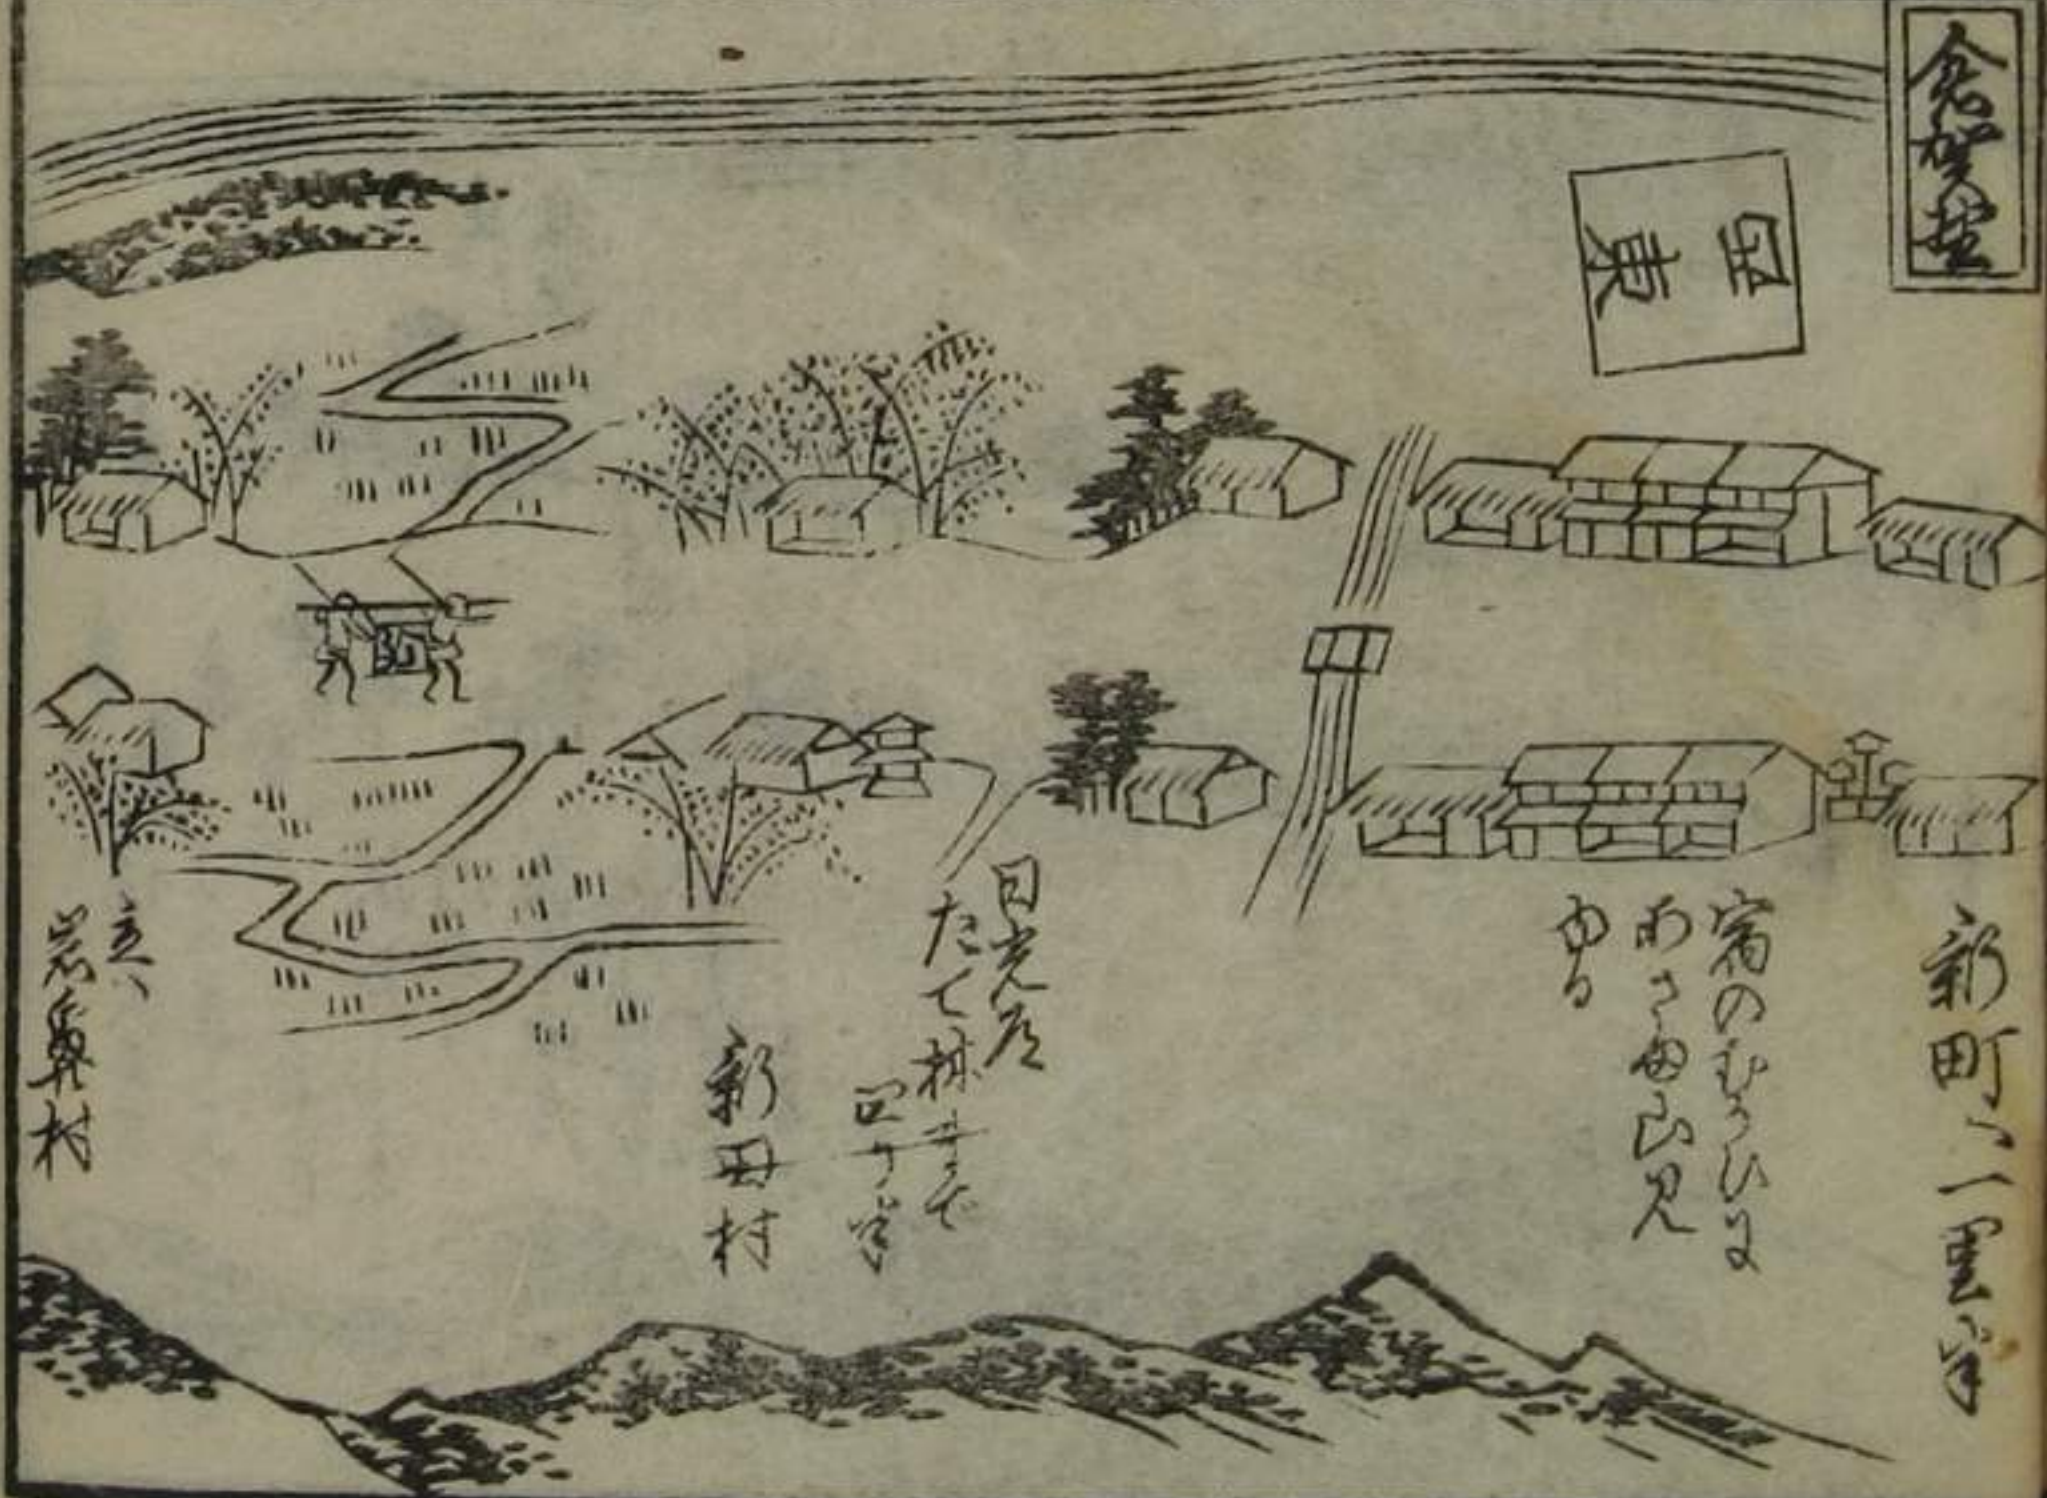 倉賀野
西
東
新町へ一里半
宿のむかひに
あさま山見
ゆる
日光道
たて林まで
四り半
新田村
立ハ
岩鼻村